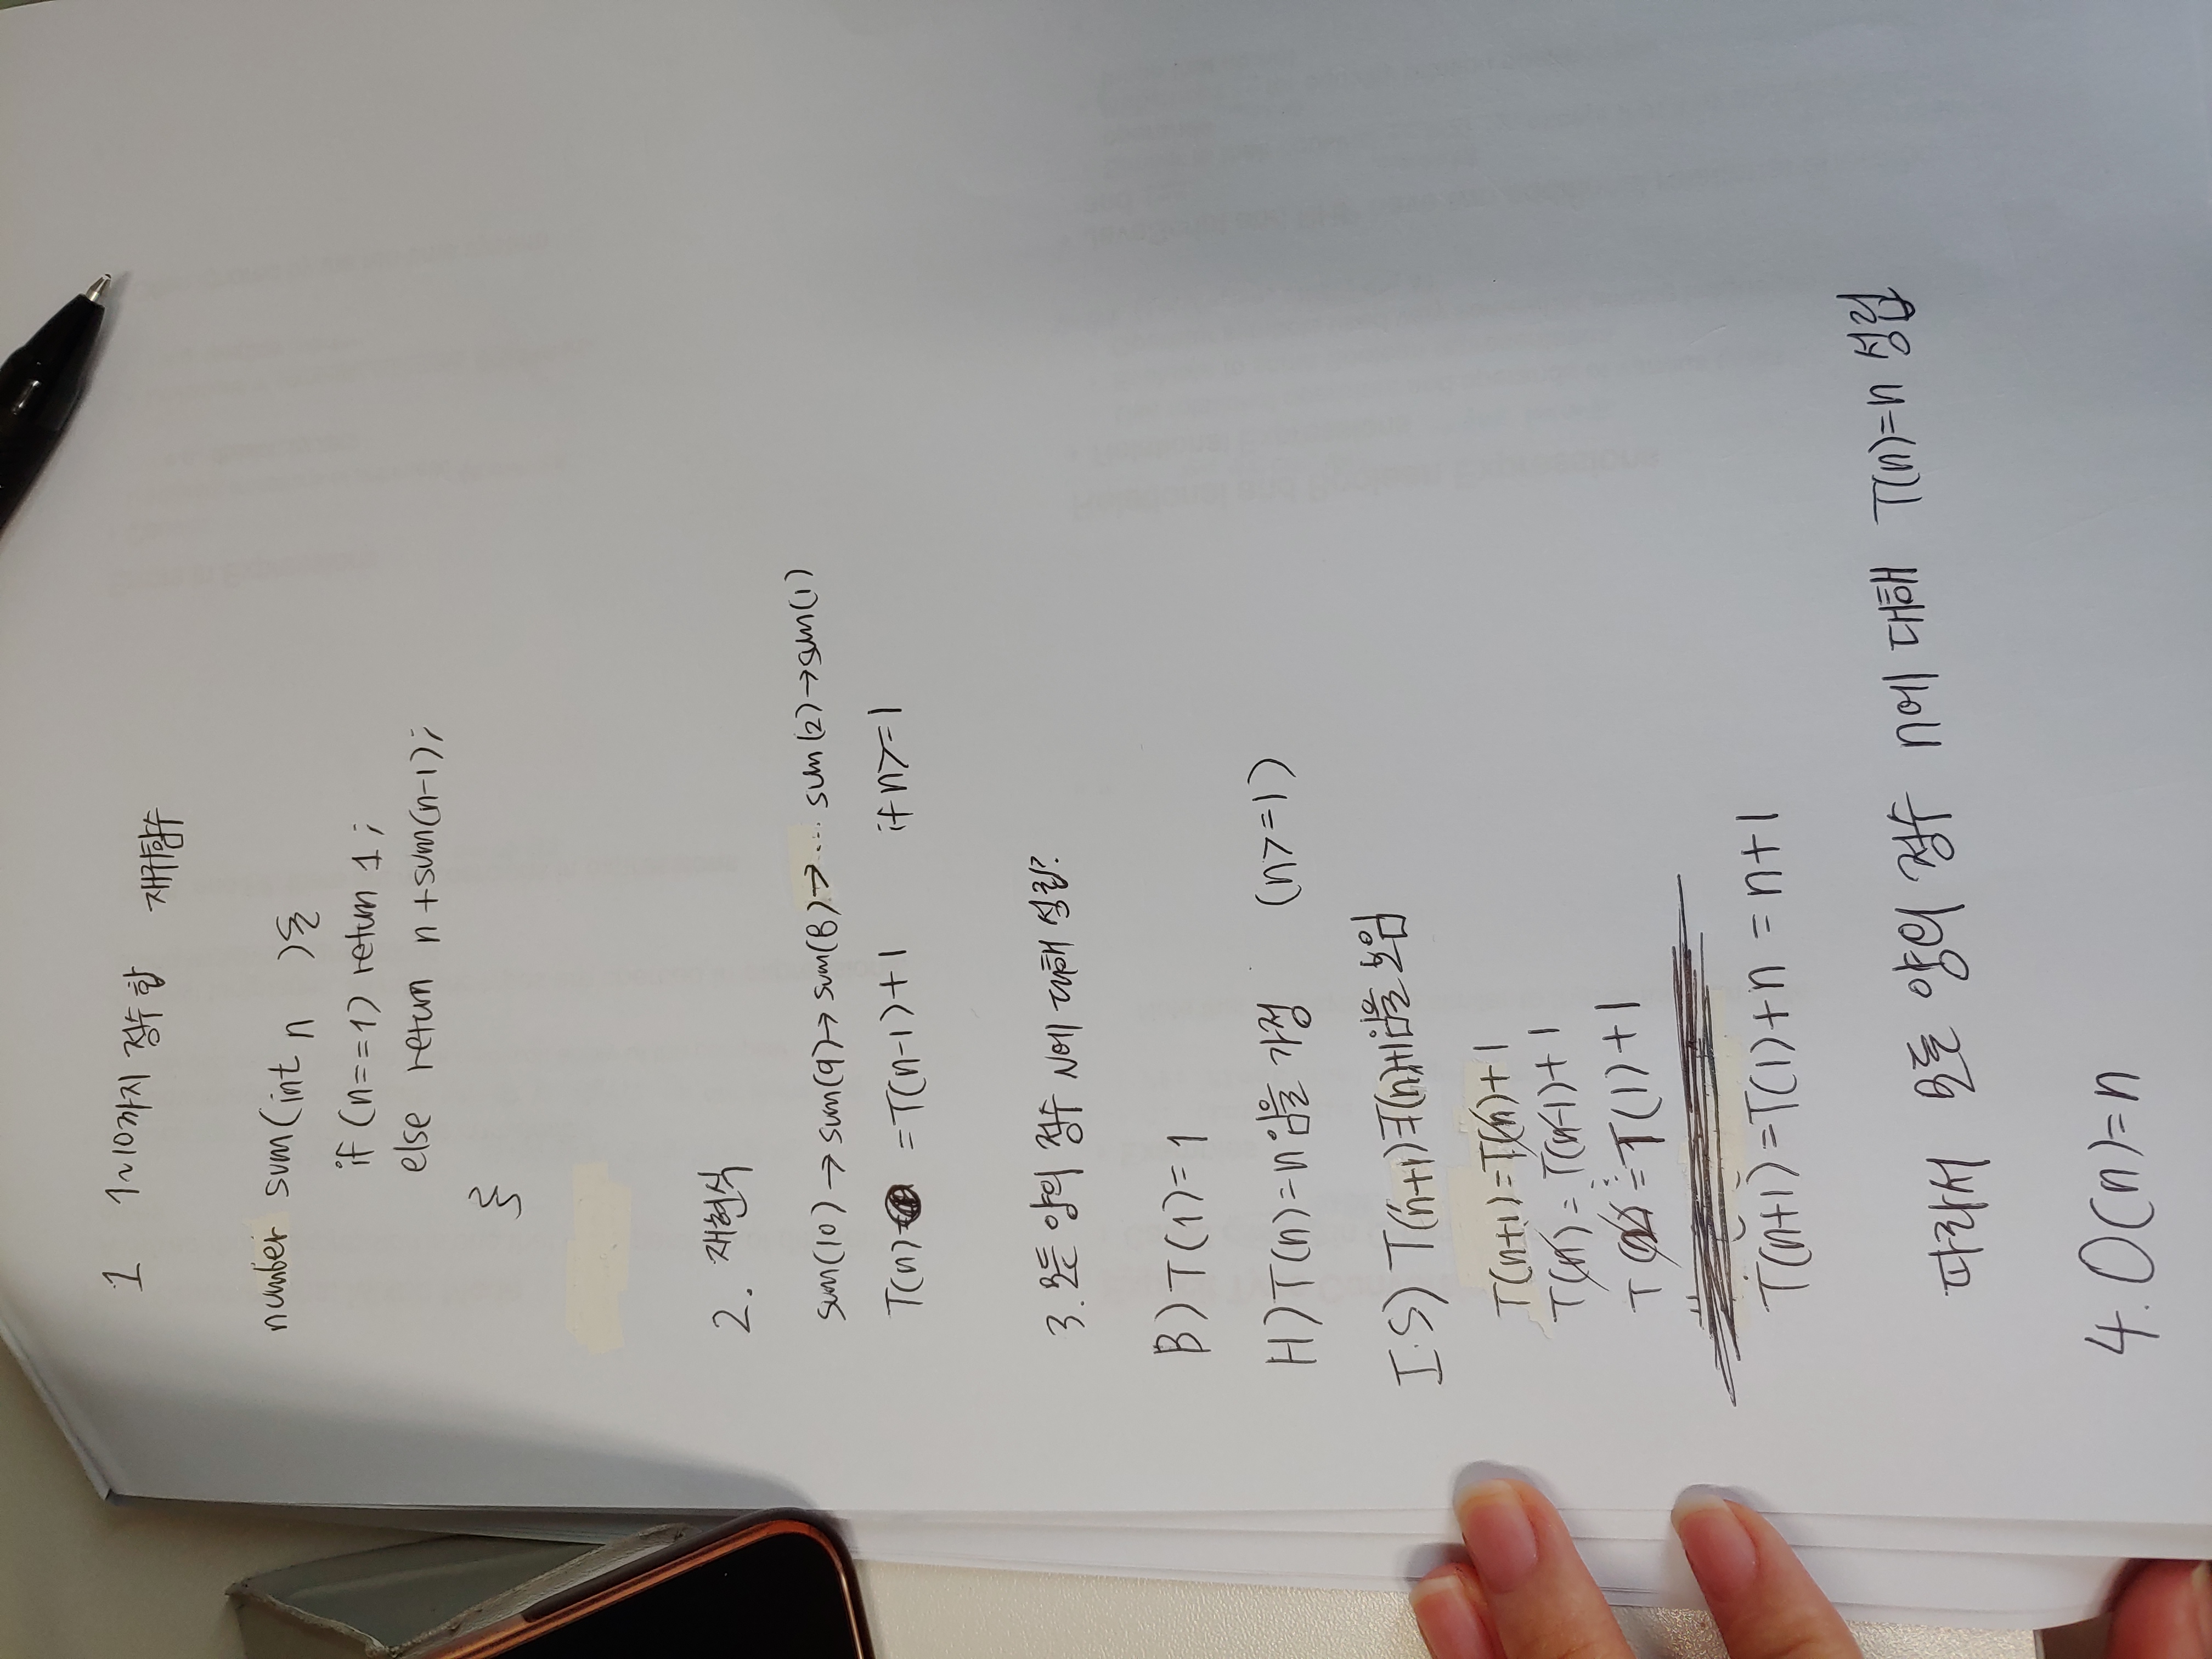 1 1~10까지 정수 합 재귀함수
number sum(int n ){
if (n==1) return 1;
else return n+sum(n-1);
}
2. 재현식
sum(10)→sum(9)→sum(8)→... sum(2)→sum(1)
T(n) =T(n-1)+1 if n>=1
3. 모든 양의 정수 N에 대해 성립?
B) T(1)=1
H) T(n)=n임을 가정 (n>=1)
I.S) T(n+1)=T(n)+1임을 보임
T(n+1)=T(n)+1
T(n)=T(n-1)+1
⋮
T(2)=T(1)+1
T(n+1)=T(1)+n=n+1
따라서 모든 양의 정수 n에 대해 T(n)=n 성립
4. O(n)=n